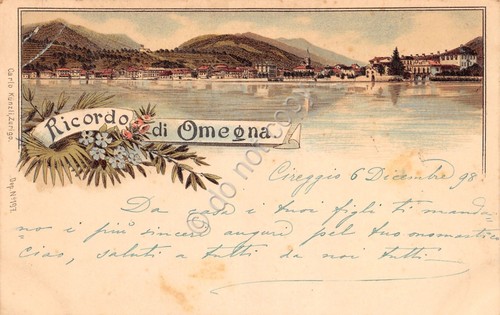 Ricordo di Omegna.
Carlo Künzli, Zurigo.
Dep. No 1917.
Cireggio 6 Dicembre 98
Da casa i tuoi figli ti manda
no i più sinceri auguri pel tuo onomastico
ciao, saluti a tutti da noi tutti